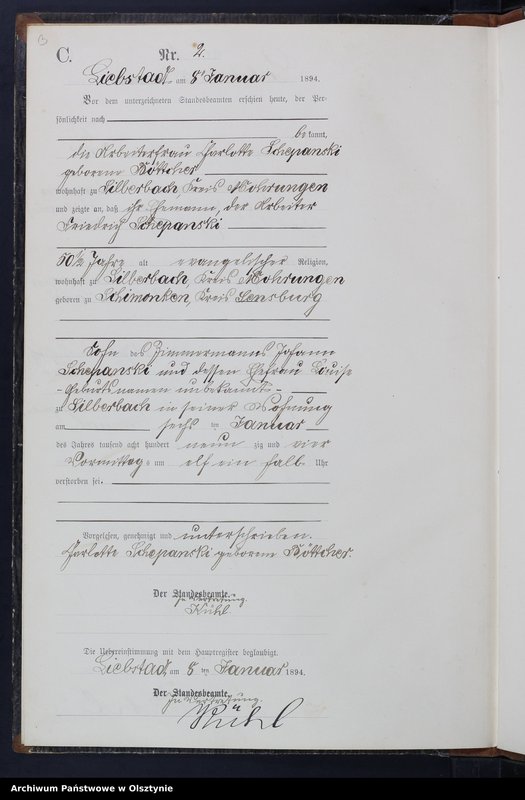 C. Nr. 2.
Liebstadt am 8ten Januar 1894.
Vor dem unterzeichneten Standesbeamten erschien heute, der Per-
sönlichkeit nach
bekannt,
die Arbeiterfrau Charlotte Schepanski
geborene Böttcher
wohnhaft zu Silberbach, Kreis Mohrungen
und zeigte an, daß ihr Ehemann, der Arbeiter
Friedrich Schepanski
50½ Jahre alt evangelischer Religion,
wohnhaft zu Silberbach, Kreis Mohrungen
geboren zu Schimonken, Kreis Sensburg
Sohn des Zimmermanns Johann
Schepanski und dessen Ehefrau Louise
-Geburtsnamen unbekannt-
zu Silberbach in seiner Wohnung
am sechs ten Januar
des Jahres tausend acht hundert neun zig und vier
Vormittags um elf ein halb Uhr
verstorben sei.
Vorgelesen, genehmigt und unterschrieben.
Charlotte Schepanski geborene Böttcher.
Der Standesbeamte.
In Vertretung.
Kühl
Die Uebereinstimmung mit dem Hauptregister beglaubigt.
Liebstadt, am 8 ten Januar 1894.
Der Standesbeamte.
In Vertretung.
Kühl
Archiwum Państwowe w Olsztynie